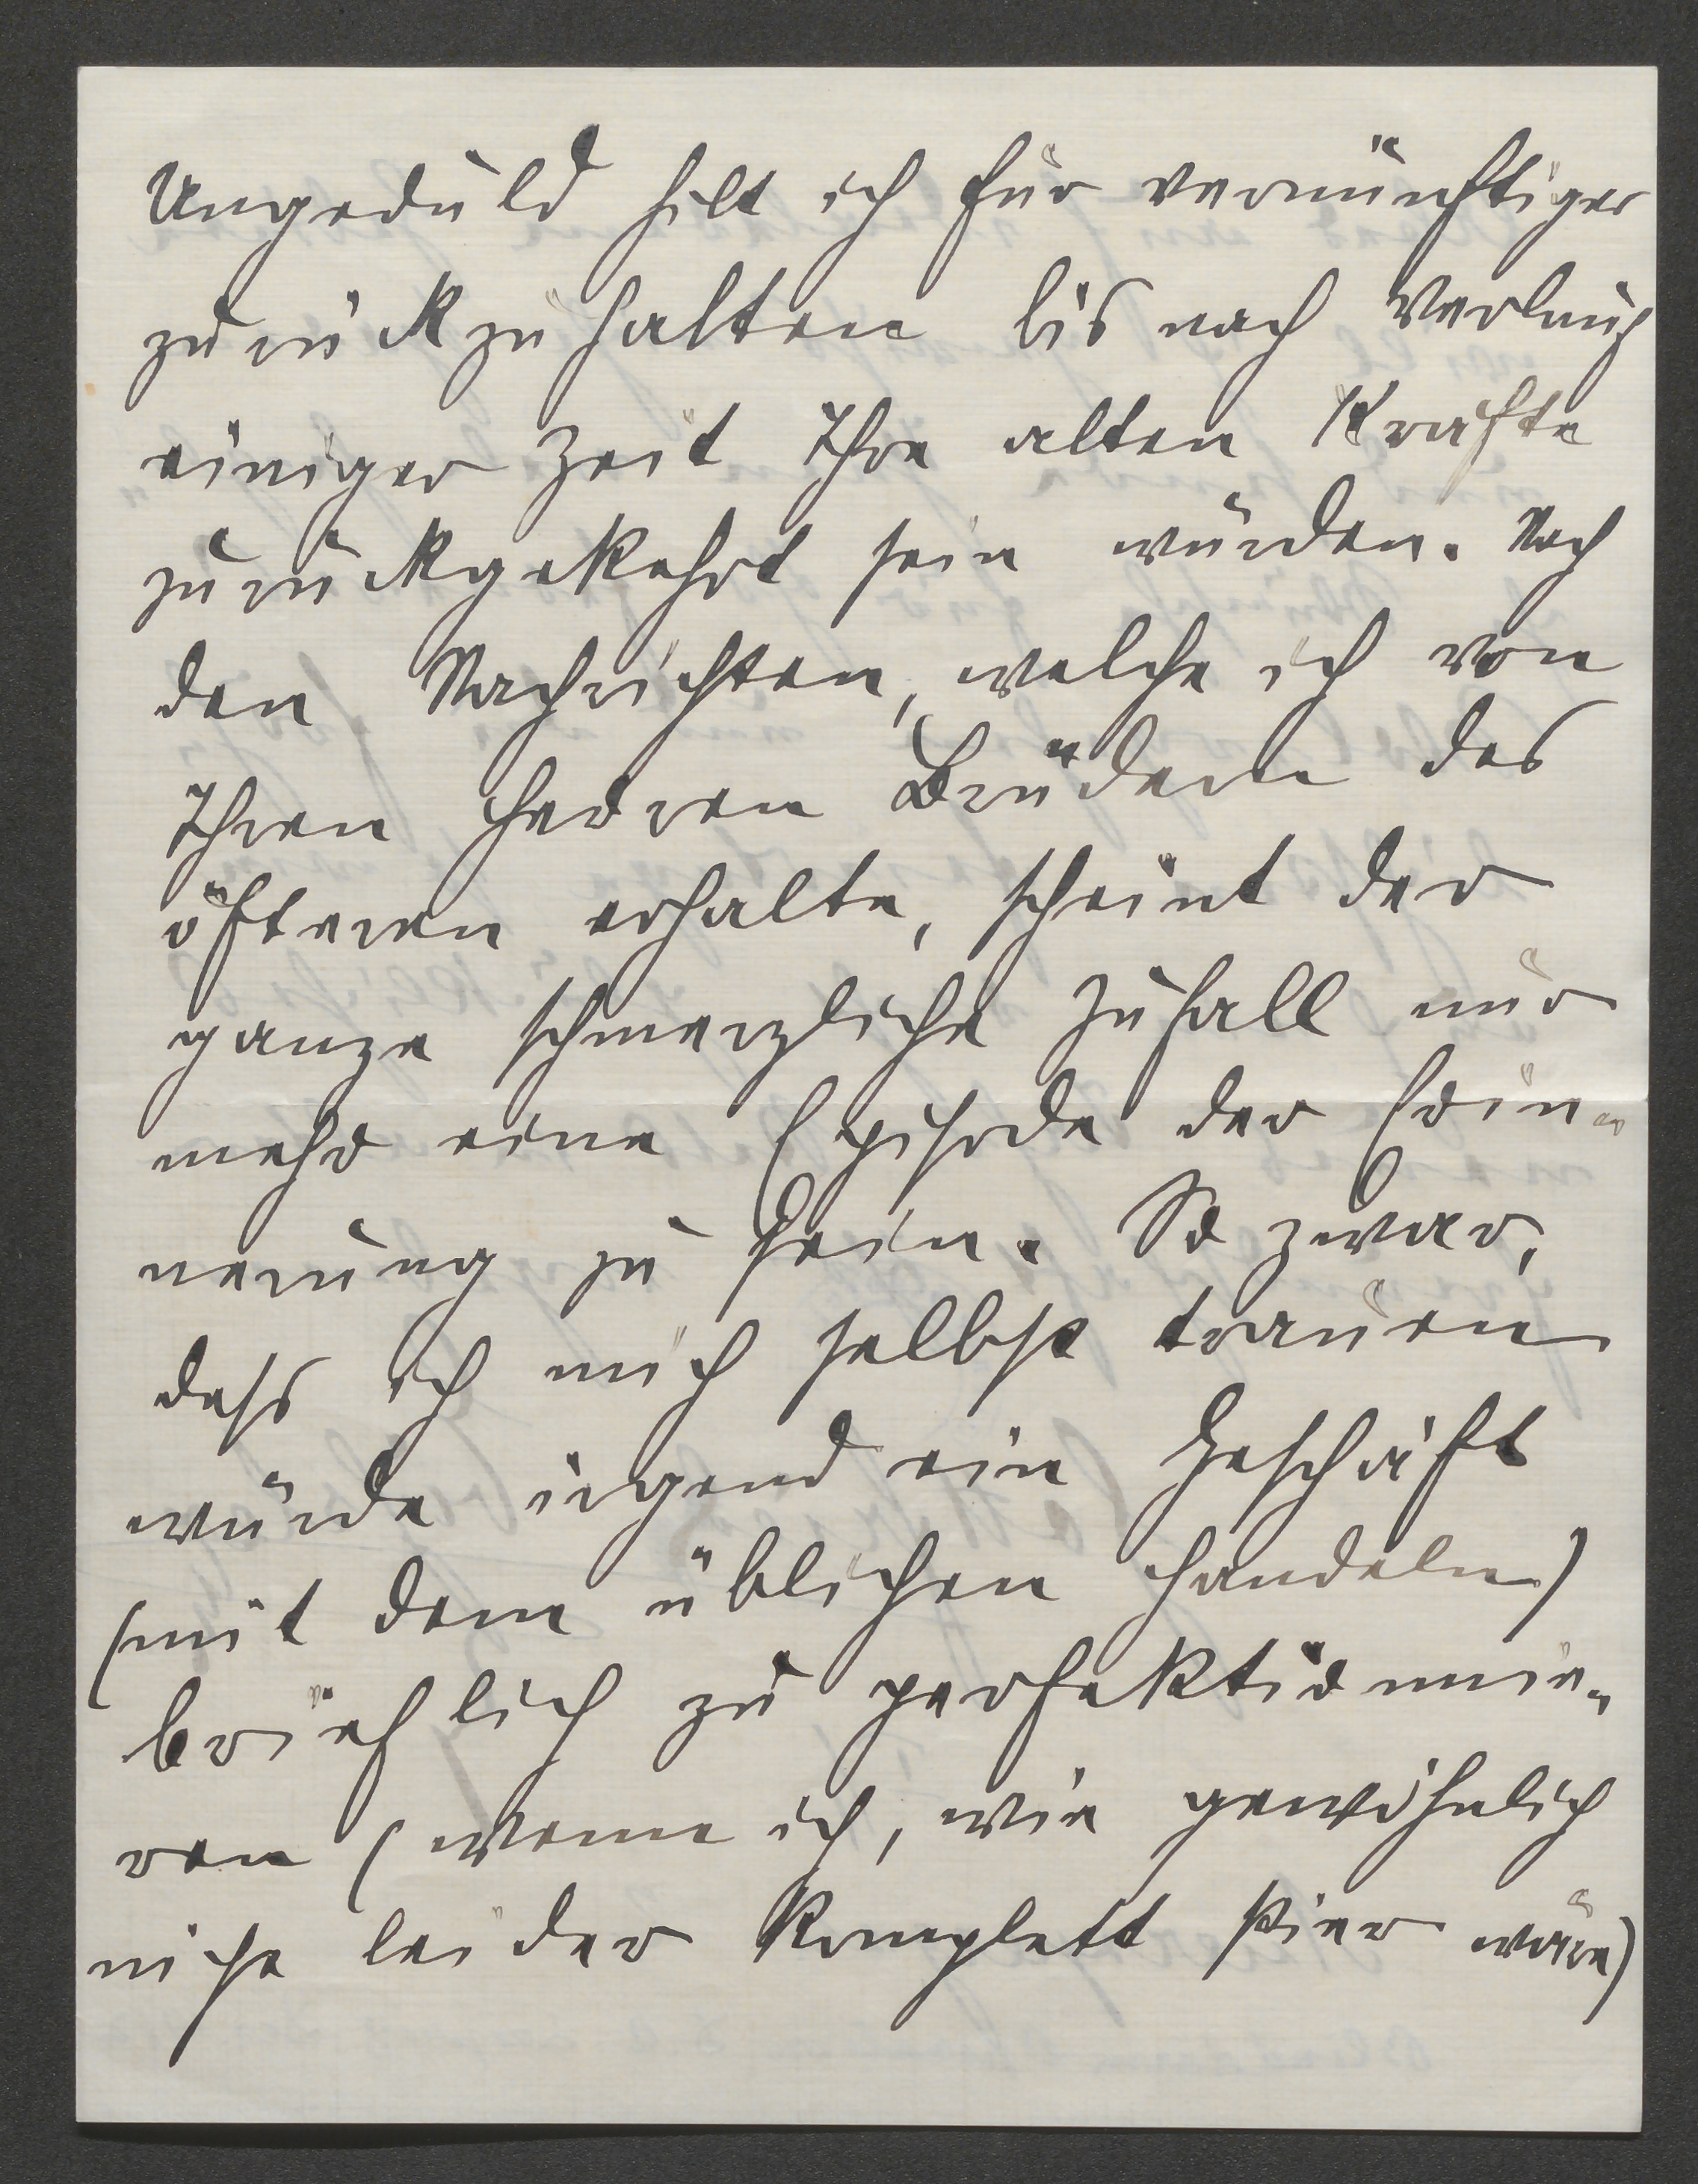 Ungeduld hilt ich für vernünftiger
zurückzuhalten bis nach Verlauf
einiger Zeit Ihre alten Kräfte
zurückgekehrt sein würden. Nach
den Nachrichten, welche ich von
Ihren Herren Brüdern des
öfteren erhalte, scheint der
ganze schmerzliche Zufall nur
mehr eine Episode der Erin-
nerung zu sein. So zwar,
dass ich mich selbst trauen
würde irgend ein Geschäft
(mit dem üblichen Handeln)
brieflich zu perfektionnie-
ren (wenn ich, wie gewöhnlich
nicht leider komplett stier wäre)